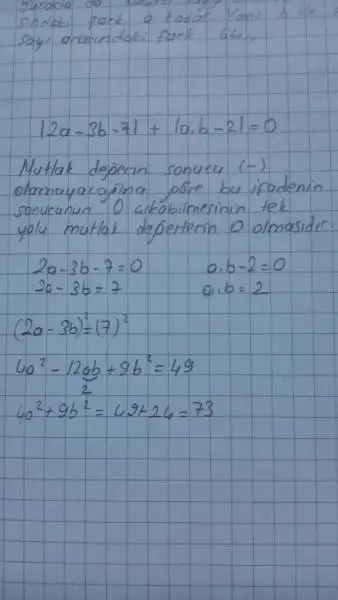 sindeki fark a kadar. Yani b ile
sayı arasındaki fark
|2a-3b-7| + |a.b-2|=0
Mutlak değerin sonucu (-)
olamayacağına göre bu ifadenin
sonucunun 0 çıkabilmesinin tek
yolu mutlak değerlerin 0 olmasıdır.
2a-3b-7=0 a.b-2=0
2a-3b=7 a.b=2
(2a-3b)²=(7)²
4a²-12ab+9b²=49
2
4a²+9b²=49+24=73